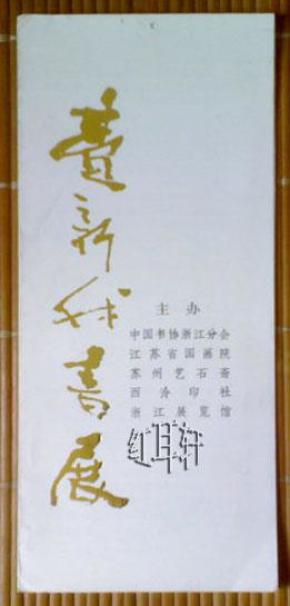 費新我書展
主办
中国书协浙江分会
江苏省国画院
苏州艺石斋
西泠印社
浙江展览馆
红耳轩